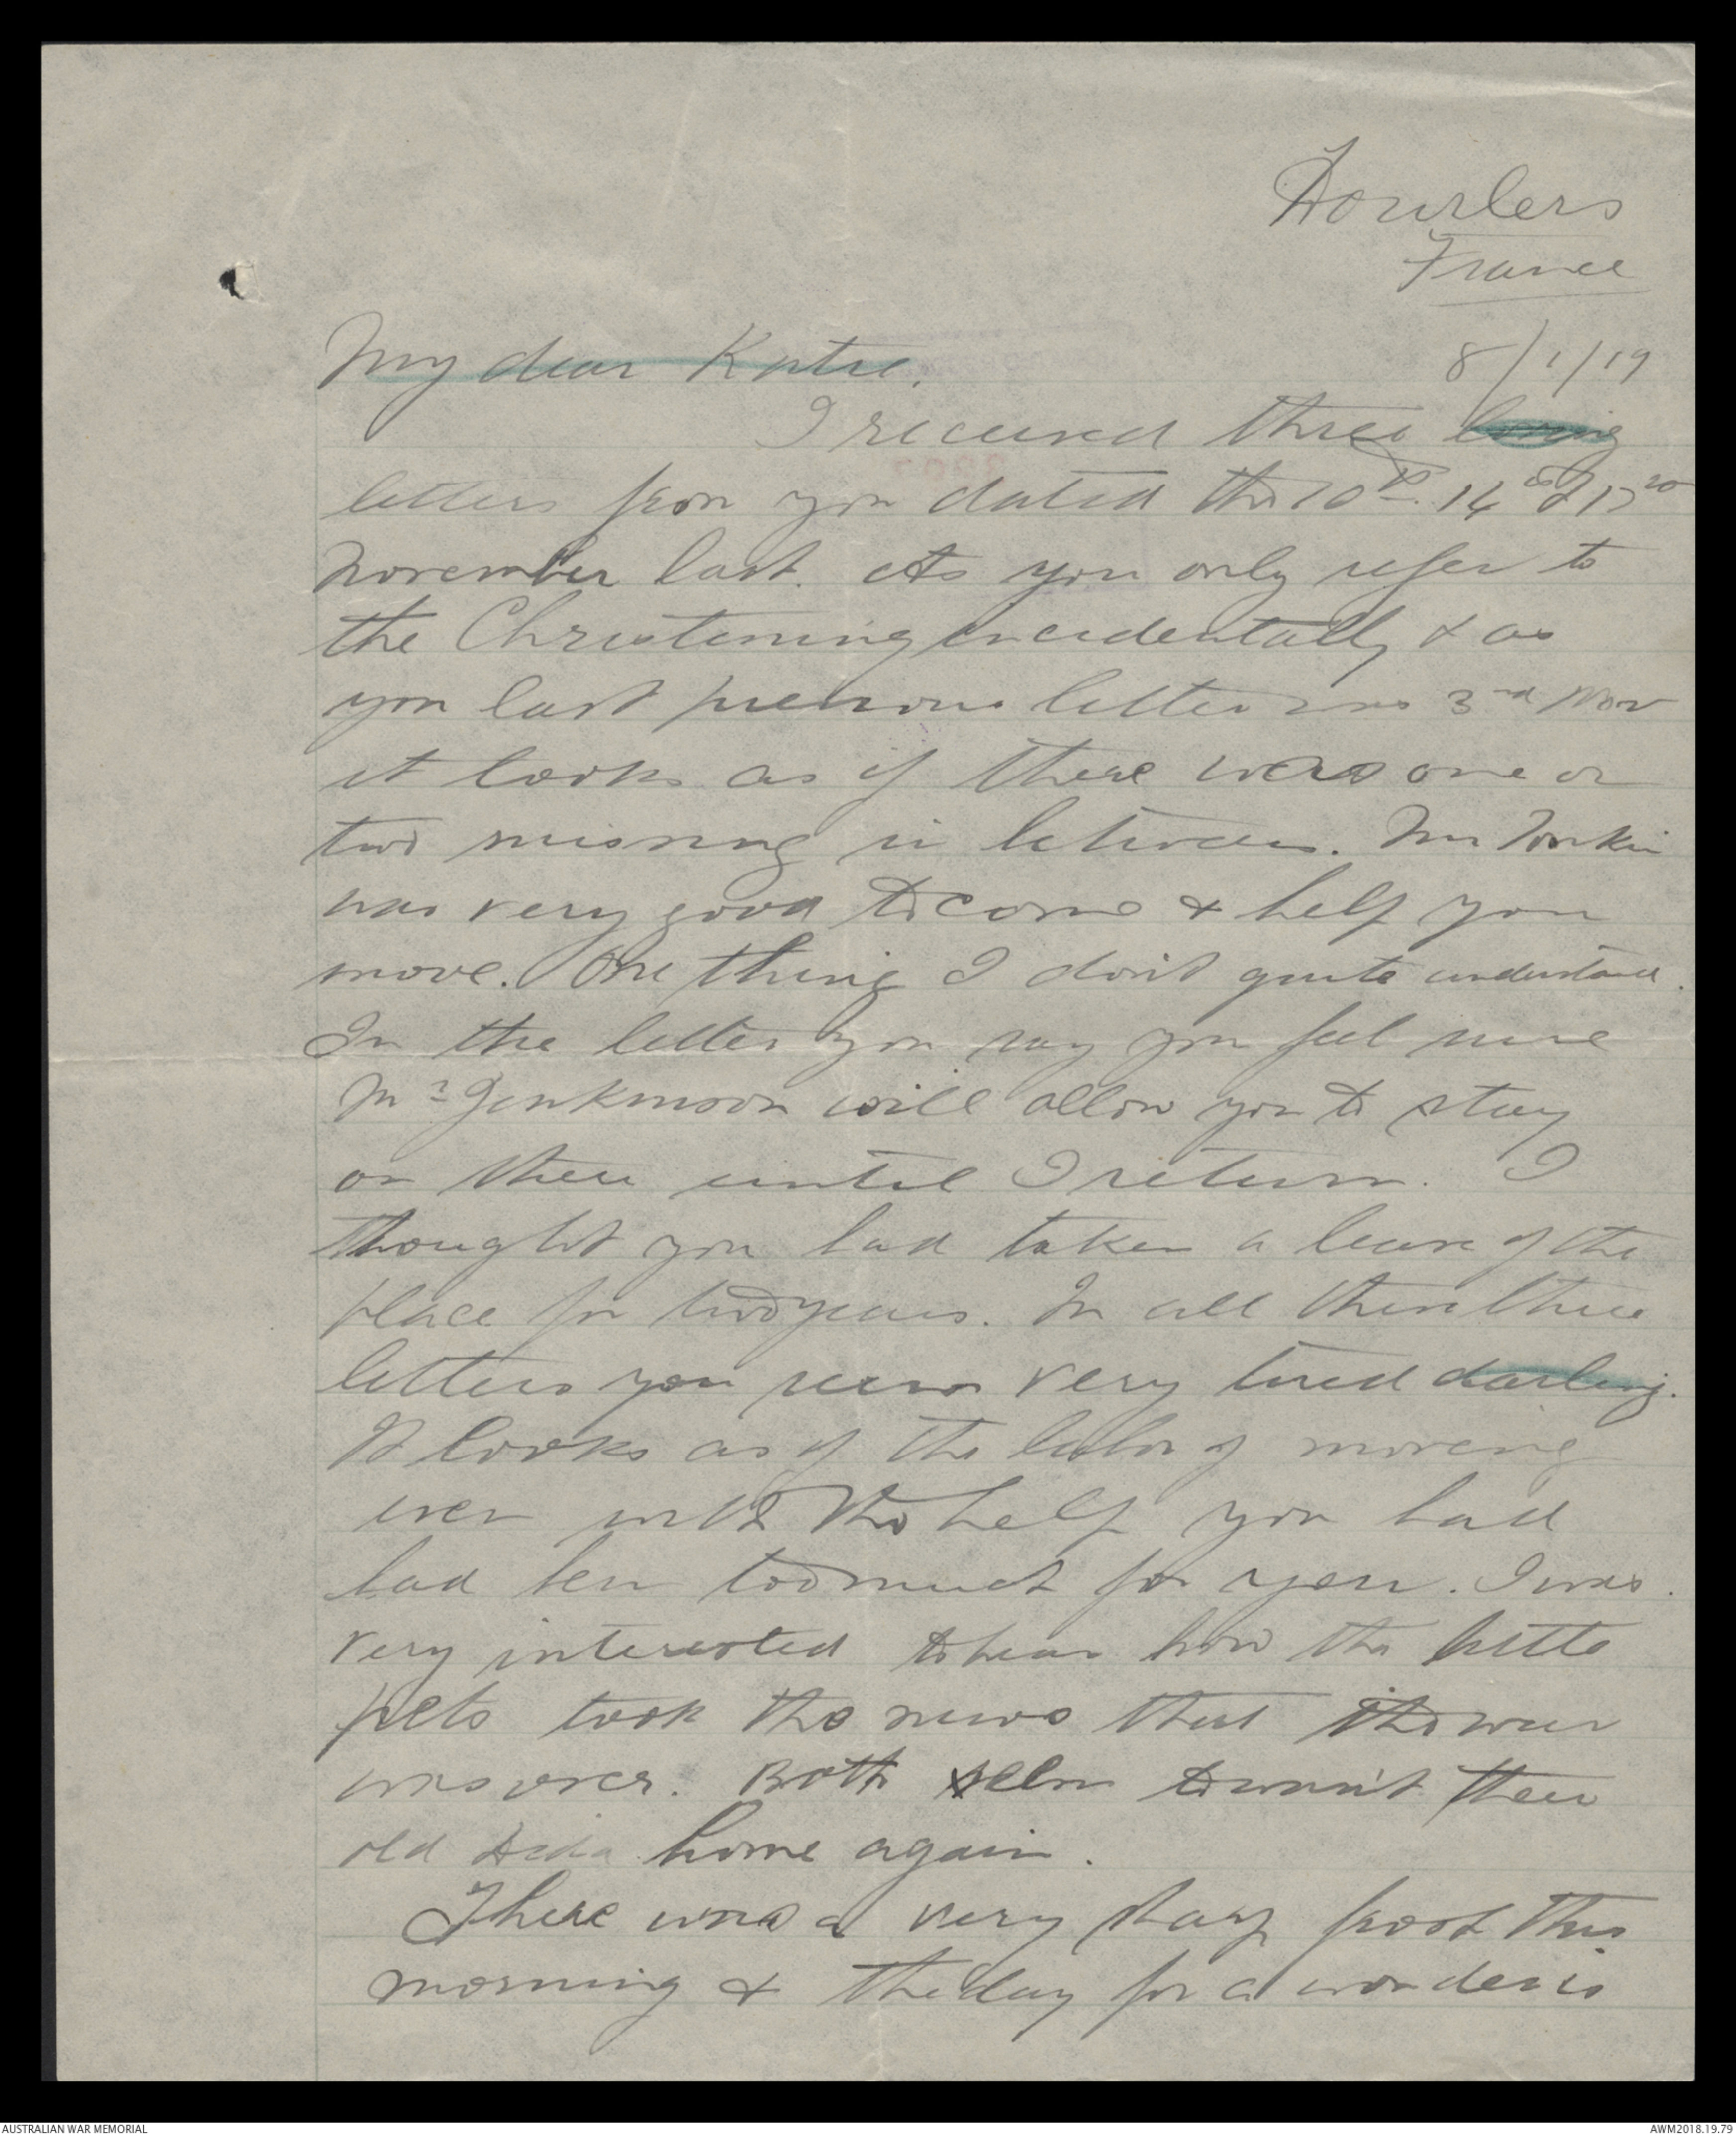 Dourlers
France
My dear Katie.
8/1/19
I received three loving
letters from you dated the 10th. 14th & 17th
November last. As you only refer to
the Christening incidentally & as
you last previous letter was 3rd Nov
it looks as if there was one or
two missing in between. Mrs Tonkin
was very good to come & help you
move. One thing I don't quite understand.
In the letter you say you feel sure
Mr Jenkinson will allow you to stay
on there until I return. I
thought you had taken a lease of the
place for two years. In all these three
letters you seem very tired darling.
It looks as if the labor of moving
even with the help you had
had been too much for you. I was
very interested to hear how the little
pets took the news that the war
was over. Both seem to want their
old Dida home again.
There was a very sharp frost this
morning & the day for a wonder is
AUSTRALIAN WAR MEMORIAL
AWM2018.19.79